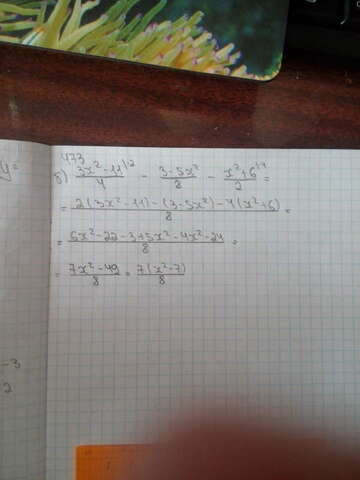 473
б) (3x²-11)/4 |·2 - (3-5x²)/8 - (x²+6)/2 |·4 =
= (2(3x²-11)-(3-5x²)-4(x²+6))/8 =
= (6x²-22-3+5x²-4x²-24)/8 =
= (7x²-49)/8 = (7(x²-7))/8
y=
-3
2